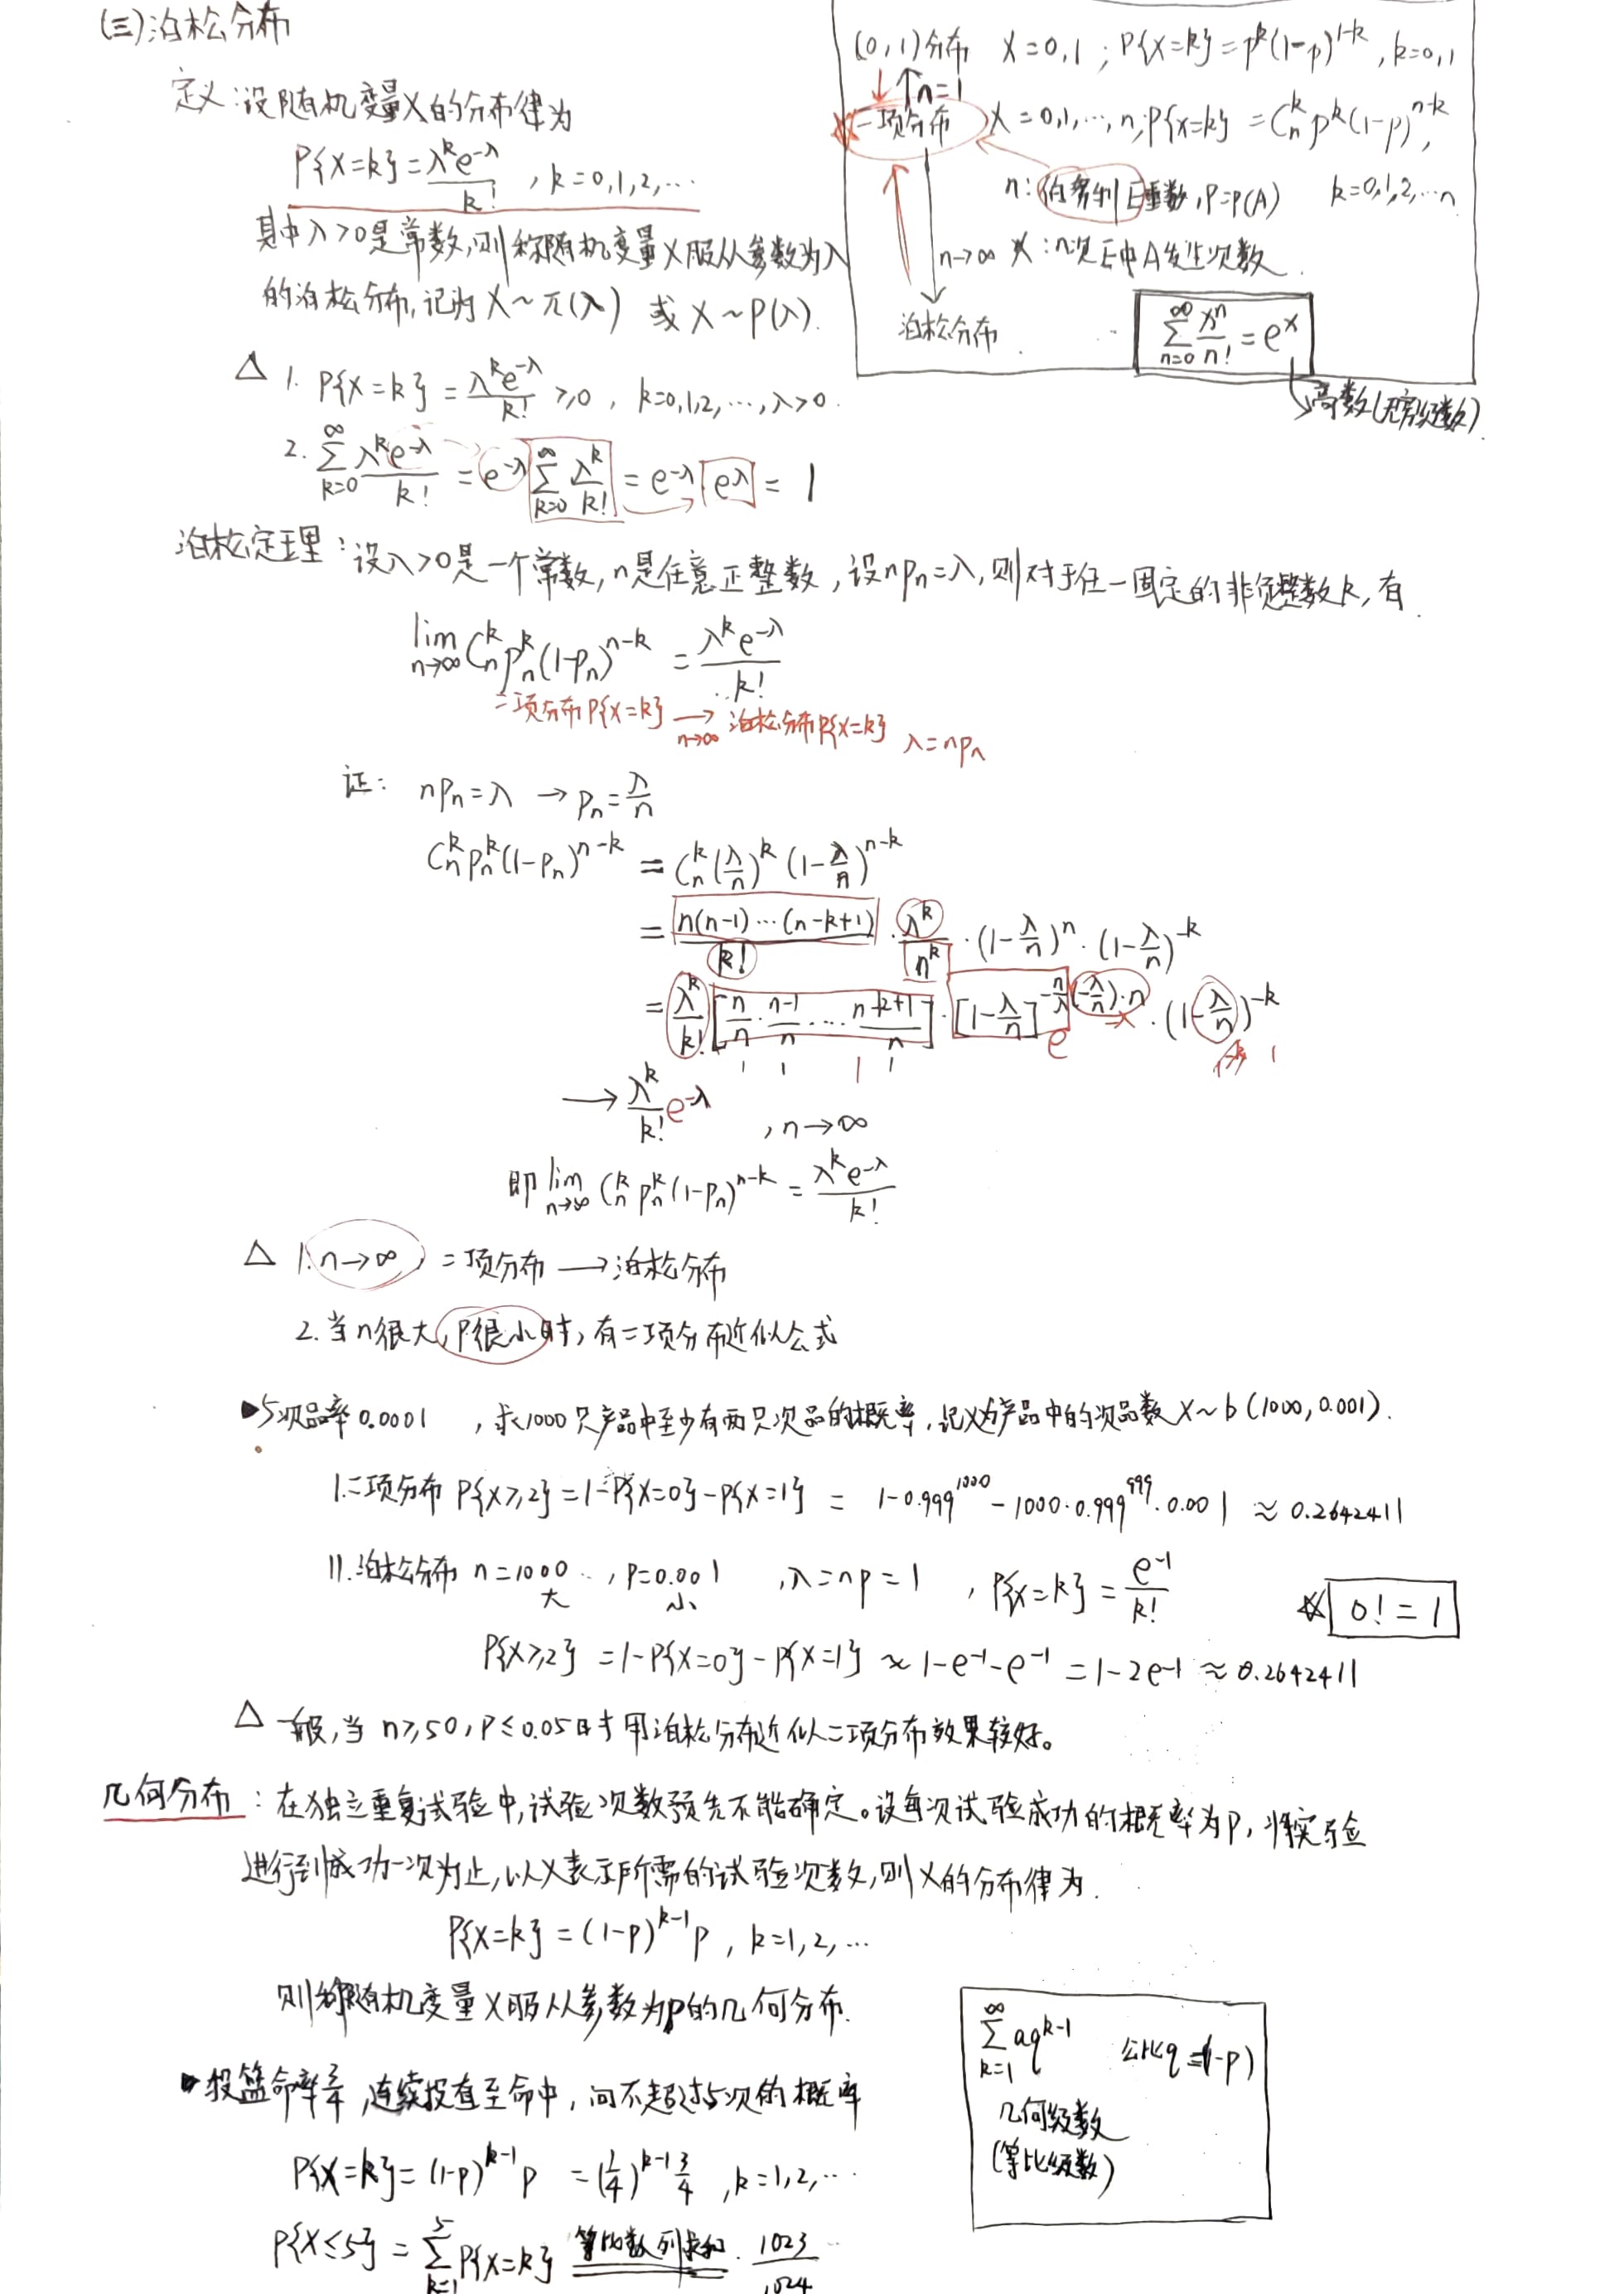 (三)泊松分布
定义:设随机变量X的分布律为
P{X=k}=λ^k e^-λ/k! , k=0,1,2,…
其中λ>0是常数,则称随机变量X服从参数为λ
的泊松分布,记为X~π(λ) 或X~P(λ).
(0,1)分布 X=0,1 ; P{X=k}=p^k(1-p)^1-k , k=0,1
n=1
二项分布 X=0,1,…,n; P{X=k} =C_n^k p^k(1-p)^n-k,
n:伯努利E重数,P=P(A) k=0,1,2,…n
n→∞ X:n次E中A发生次数
泊松分布
∑_{n=0}^∞ x^n/n! = e^x
高数(无穷级数)
△ 1. P{X=k}=λ^k e^-λ/k! ≥0 , k=0,1,2,…,λ>0.
2. ∑_{k=0}^∞ λ^k e^-λ/k! = e^-λ ∑_{k=0}^∞ λ^k/k! = e^-λ e^λ = 1
泊松定理:设λ>0是一个常数,n是任意正整数,设np_n=λ,则对于任一固定的非负整数k,有
lim_{n→∞} C_n^k p_n^k(1-p_n)^n-k = λ^k e^-λ/k!
二项分布P{X=k} →_{n→∞} 泊松分布P{X=k} λ=np_n
证: np_n=λ → p_n=λ/n
C_n^k p_n^k(1-p_n)^n-k = C_n^k (λ/n)^k (1-λ/n)^n-k
= n(n-1)…(n-k+1)/k! · λ^k/n^k · (1-λ/n)^n · (1-λ/n)^-k
= λ^k/k! [n/n · n-1/n · … · n-k+1/n] · [1-λ/n]^{-n/λ (-λ/n)·n} · (1-λ/n)^-k
1 1 1 1 e -λ 1
→ λ^k/k! e^-λ , n→∞
即 lim_{n→∞} C_n^k p_n^k(1-p_n)^n-k = λ^k e^-λ/k!
△ 1. n→∞ 二项分布→泊松分布
2.当n很大,P很小时,有二项分布近似公式
▶5次品率0.0001 ,求1000只产品中至少有两只次品的概率,记X为产品中的次品数X~b(1000,0.001).
I.二项分布 P{X≥2}=1-P{X=0}-P{X=1} = 1-0.999^1000-1000·0.999^999·0.001 ≈0.2642411
II.泊松分布 n=1000 , p=0.001 ,λ=np=1 ,P{X=k}=e^-1/k!
大 小
0!=1
P{X≥2} =1-P{X=0}-P{X=1}≈1-e^-1-e^-1=1-2e^-1≈0.2642411
△ 一般,当n≥50,P≤0.05时用泊松分布近似二项分布效果较好。
几何分布:在独立重复试验中,试验次数预先不能确定。设每次试验成功的概率为P,将实验
进行到成功一次为止,以X表示所需的试验次数,则X的分布律为.
P{X=k}=(1-P)^k-1 P , k=1,2,…
则称随机变量X服从参数为P的几何分布.
∑_{k=1}^∞ aq^k-1 公比q=(1-p)
几何级数
(等比级数)
投篮命率¾,连续投直至命中,问不超过5次的概率
P{X=k}=(1-P)^k-1 P =(1/4)^k-1 3/4 ,k=1,2,…
P{X≤5}=∑_{k=1}^5 P{X=k} 等比数列求和 1023/1024